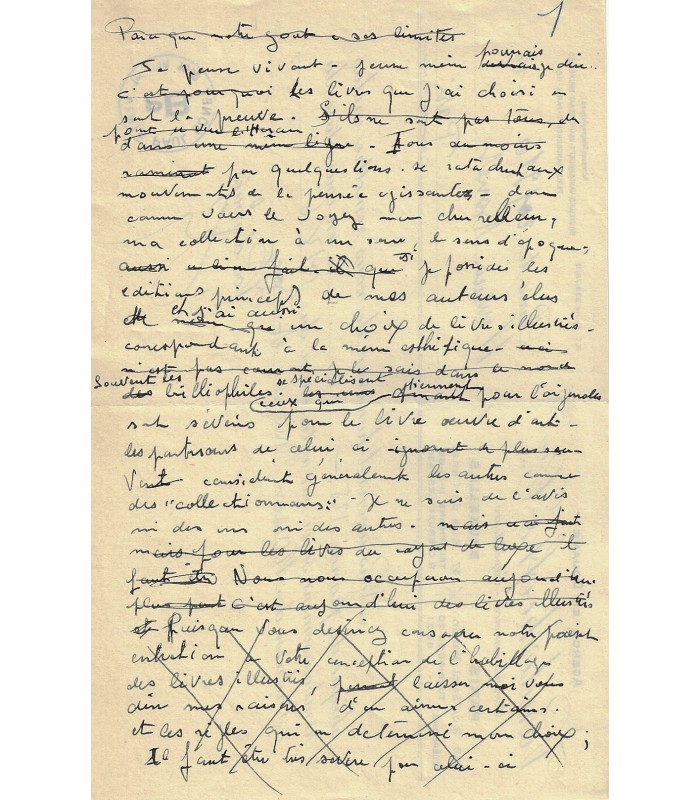 1
Parce que notre goût a ses limites
pourrais
Je pense vivant - j'ense même devrais je dire..
c'est pourquoi les livres que j'ai choisi en
sont la preuve. S'ils ne sont pas tous, du
point de vue
dans une même ligne. Tous du moins
par quelques se rattachent aux
mouvements de la pensée agissante - donc
comme vous le voyez mon cher
ma collection à un sens, le sens d'époque,
aussi que si je possède les
editions princeps de mes auteurs élus
et j'ai aussi
même que un choix de livres illustrés -
correspondant à la même esthétique -
n'est pas courant, je le sais dans le monde
Souvent les se spécialisent
des bibliophiles. ceux qui tiennent pour l'originales
sont sévères pour le livre œuvre d'art -
les partisans de celui ci ignorent le plus sou-
vent considérant généralement les autres comme
des "collectionneurs" - Je ne suis de l'avis
ni des uns ni des autres - mais
mais pour les livres du rayon de luxe il
faut être Nous nous occuperons aujourd'hui
plus part c'est aujourd'hui des livres illustrés
Puisque vous désiriez consacrer notre présent
entretien à votre conception de l'habillage
des livres illustrés, laisser moi vous
dire mes raisons d'en aimer certains.
et les règles qui en déterminé mon choix ;
Il faut être très severe pour celui-ci